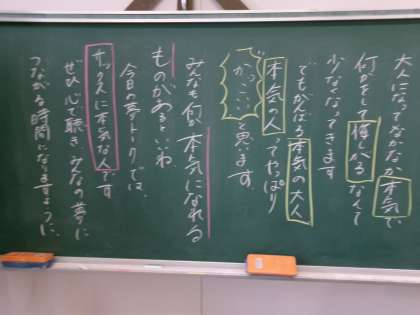 大人になってなかなか本気で
何かをして悔しがるなんて
少なくなってきます
でもがんばる本気の大人
本気の人ってやっぱり
かっこいいと思います
みんなも何か本気になれる
ものがあるといいね
今日の夢トークでは、
サックスに本気な人です
ぜひ心で聴き、みんなの夢に
つながる時間になりますように、